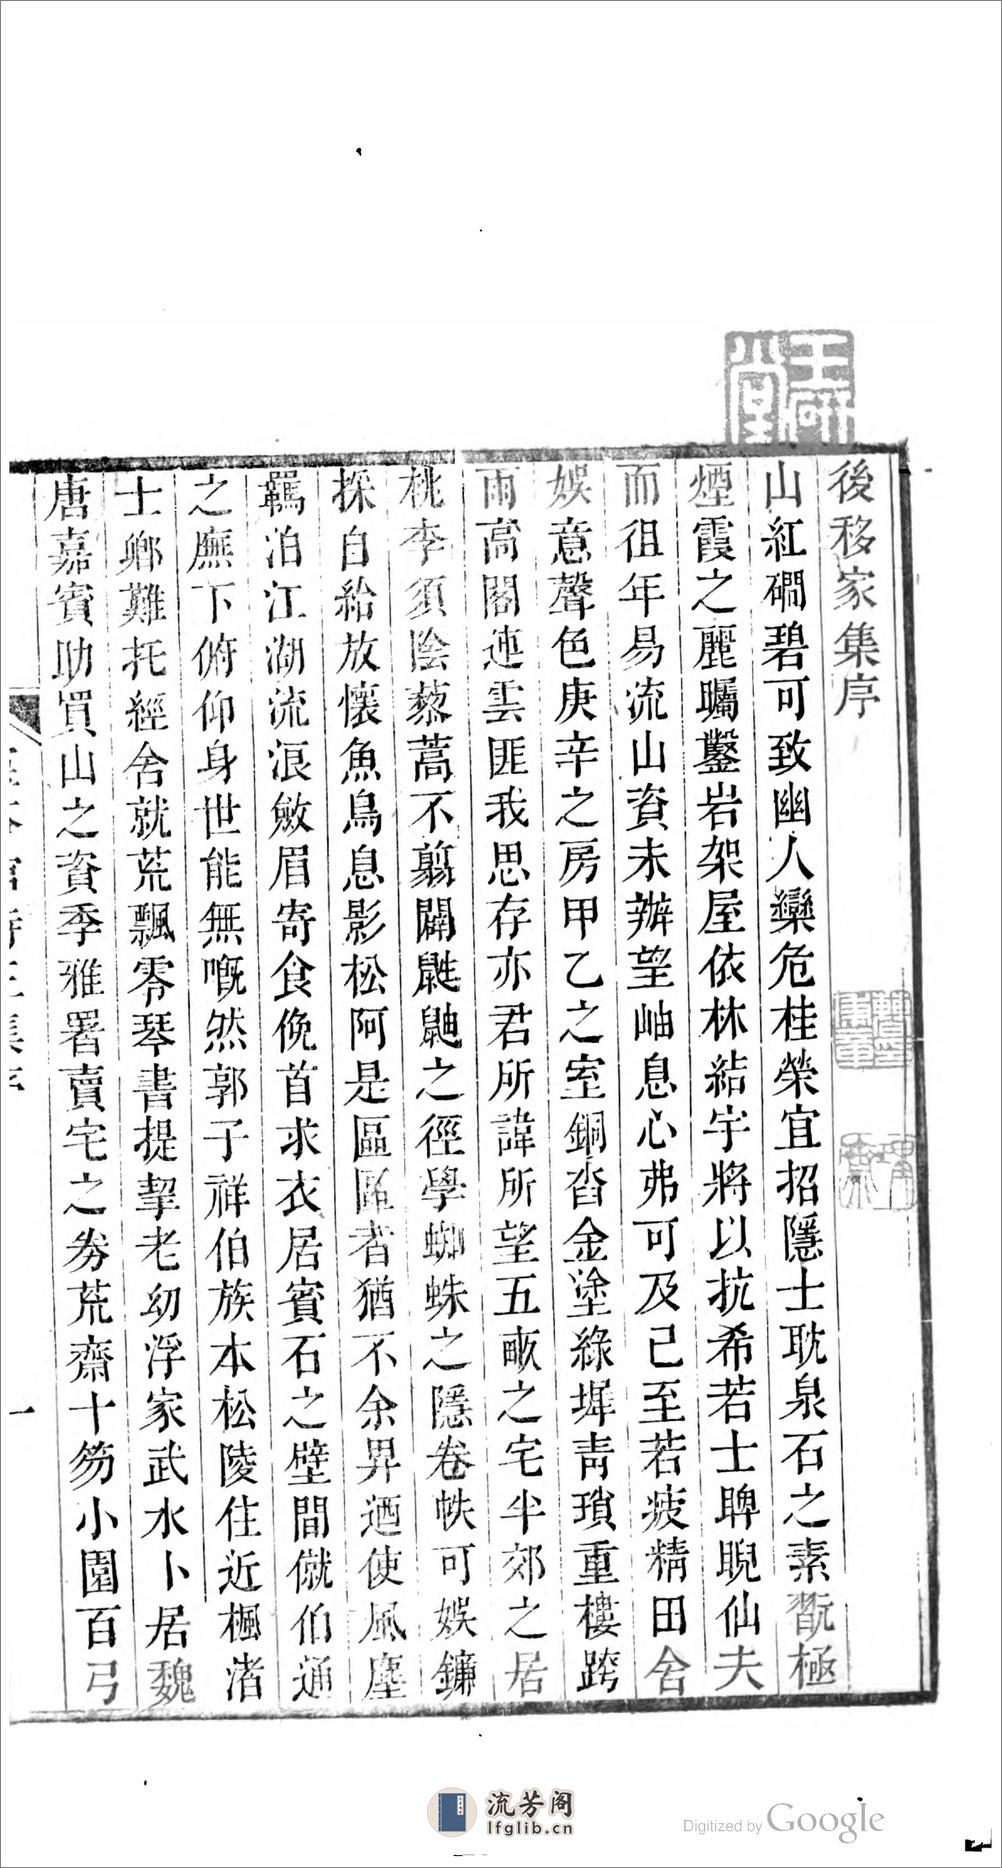 後移家集序
山紅磵碧可致幽人欒危桂榮宜招隱士耽泉石之素翫極
煙霞之麗矚鑿岩架屋依林結宇將以抗希若士睥睨仙夫
而徂年易流山資未辦望岫息心弗可及已至若疲精田舍
娛意聲色庚辛之房甲乙之室銅沓金塗綠墀青瑣重樓跨
雨高閣連雲匪我思存亦君所諱所望五畝之宅半郊之居
桃李須陰藜蒿不翦闢鼪鼬之徑學蜘蛛之隱卷帙可娛鐮
採自給放懷魚鳥息影松阿是區區者猶不余畀迺使風塵
羈泊江湖流浪斂眉寄食俛首求衣居賓石之壁間僦伯通
之廡下俯仰身世能無嘅然郭子祥伯族本松陵住近楓渚
士鄉難托經舍就荒飄零琴書提挈老幼浮家武水卜居魏
唐嘉賓助買山之資季雅署賣宅之券荒齋十笏小園百弓
一
流芳阁
lfglib.cn
Digitized by Google